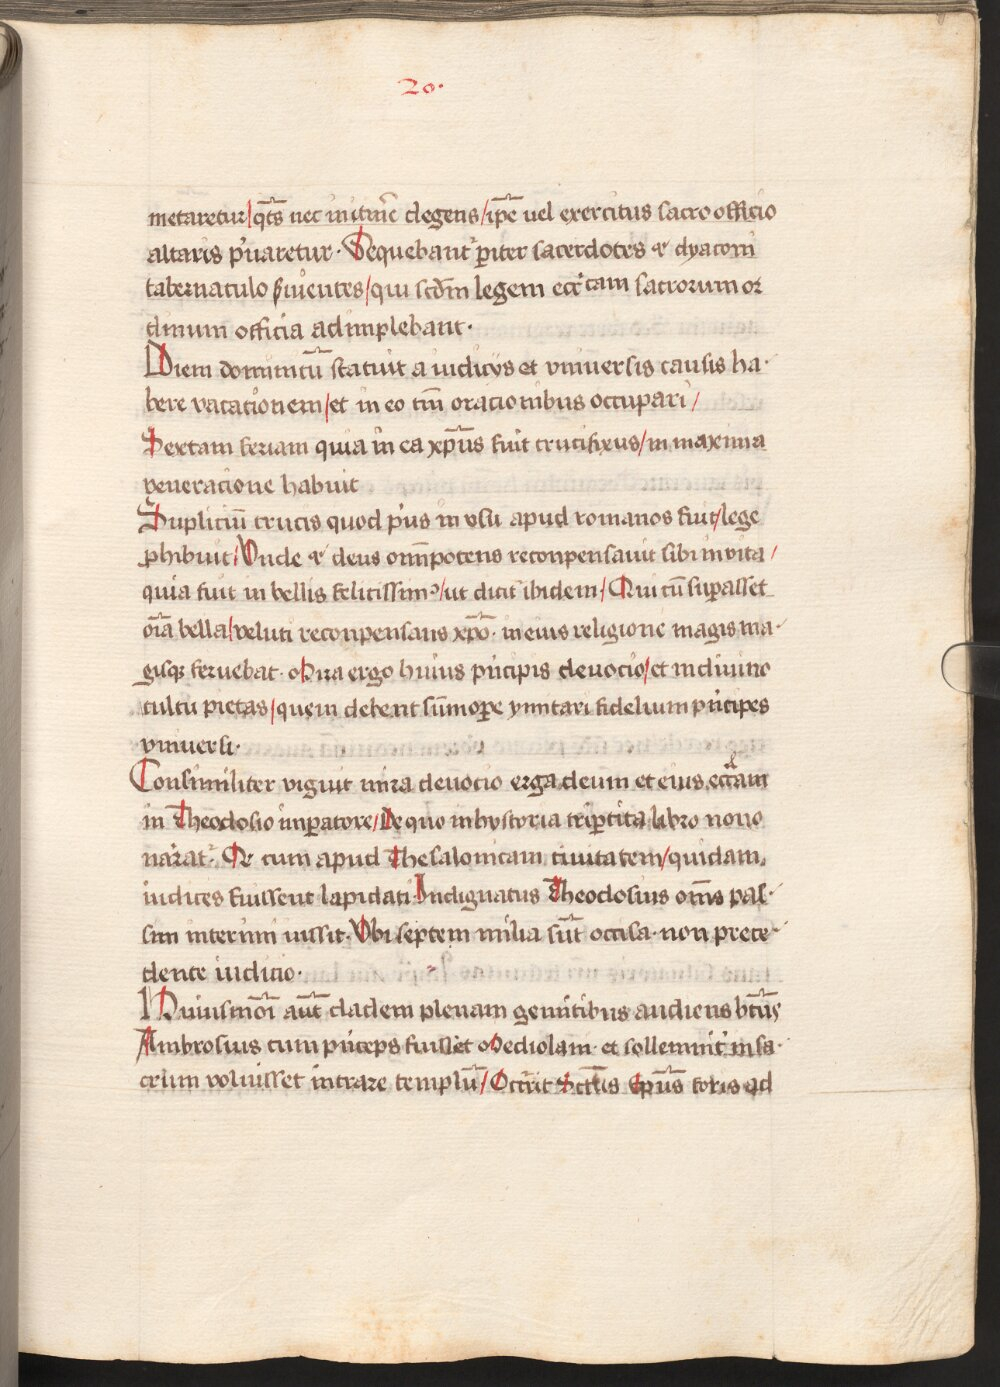 20.
metaretur/ qt̄s nec in itin̄e degens/ ip̄e uel exercitus sacro officio
altaris p'uaretur. Sequebant' p̄iter sacerdotes et dyaconi
tabernaculo s̄uientes/ qui scd̄m legem ecc̄'cam sacrorum or
dinum officia adimplebant.
Diem dominicū statuit a iudicijs et vniuersis causis ha-
bere vacationem/ et in eo tm̄ oracionibus occupari /
Sextam feriam quia in ea xp̄us fuit crucifixus/ in maxima
veneracione habuit
Supliciū crucis quod p'us in vsu apud romanos fuit/ lege
ꝓhibuit/ Vnde et deus om̄ipotens reconpensauit sibi in vita /
quia fuit in bellis felicissimꝰ/ ut dicit' ibidem/ Qui cū supasset
oīa bella/ veluti reconpensans xp̄o. in eius religione magis ma-
gisqꝫ feruebat. Mira ergo huius p'ncipis deuocio/ et in diuino
cultu pietas/ quem debent sūmoꝑe ymitari fidelium p'ncipes
vniuersi.
Consimiliter viguit mira deuocio erga deum et eius eccāam
in Theodosio imꝑatore/ De quo in hystoria tripertita libro nono
narrat'. Qr cum apud Thesalonicam ciuitatem/ quidam
iudices fuissent lapidati. Indignatus Theodosius om̄s pas-
sim interimi iussit. Vbi septem milia sūt occisa. non prece-
dente iudicio.
Huiusmōi aūt cladem plenam gemitibus audiens btūs
Ambrosius cum p'nceps fuisset Mediolani et sollemnit' in sa-
crum voluisset intrare templū/ Occ̄rit Sctūs Ep̄us foris ad